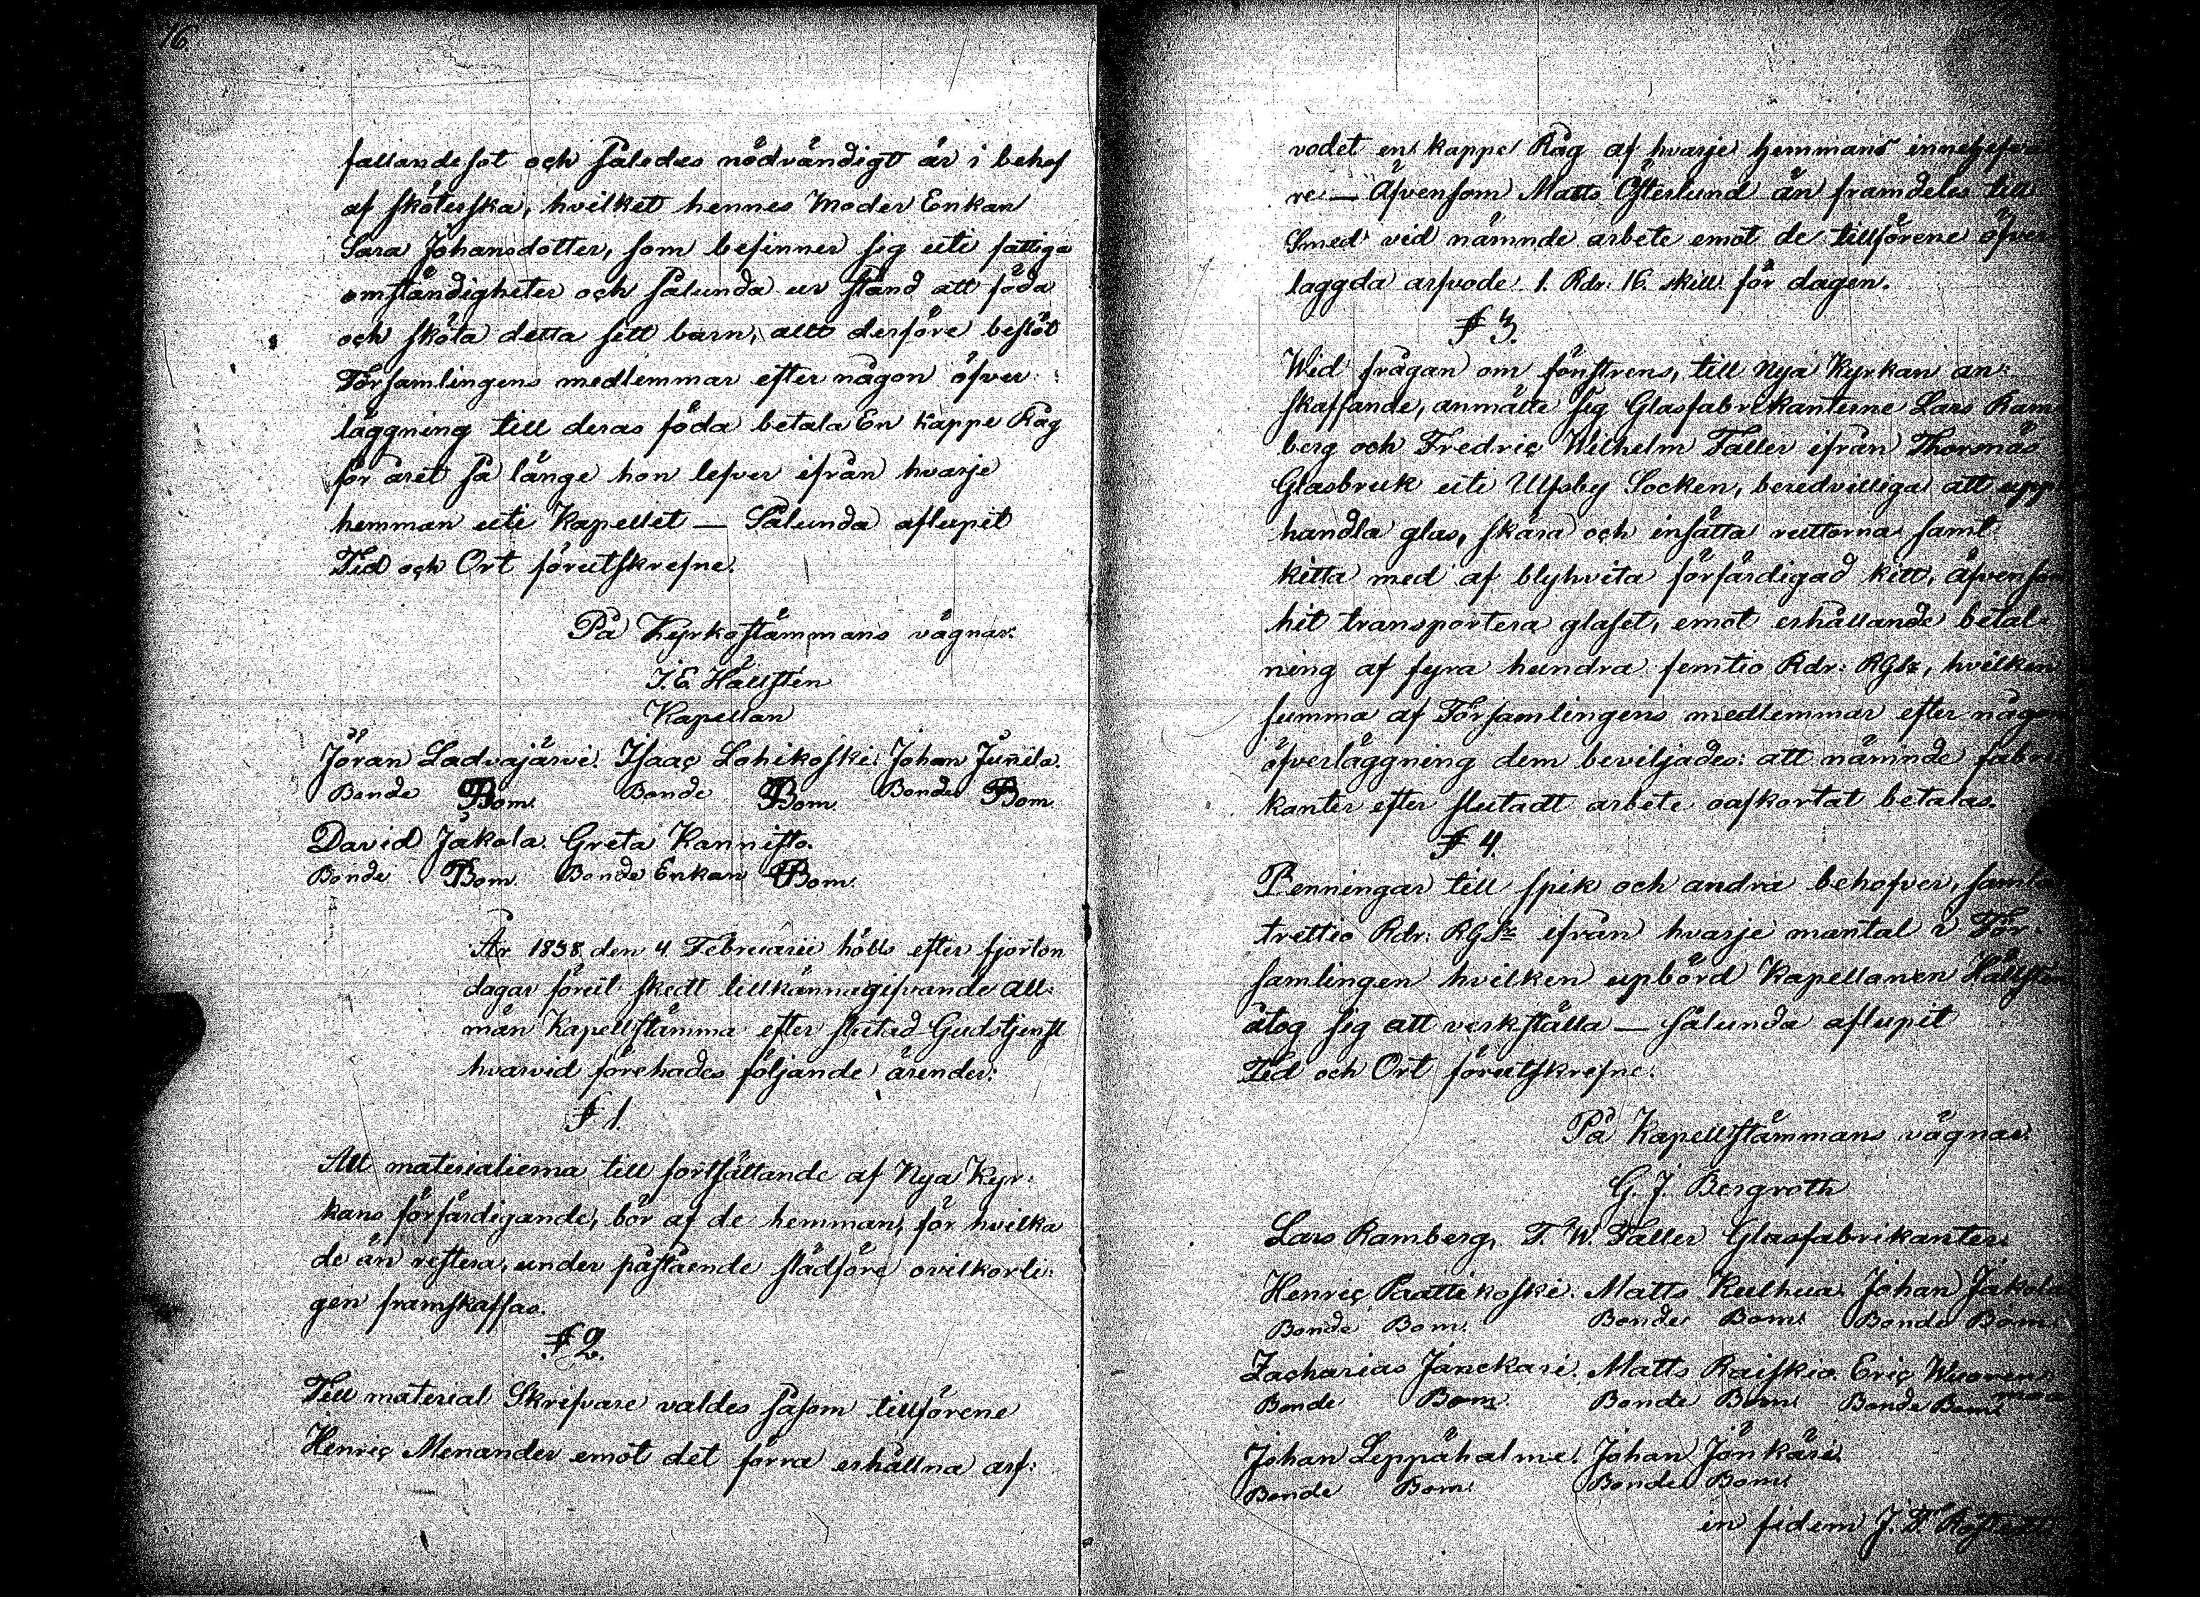 16.
fallandesot och således nödvändigt är i behof
af sköterska, hvilket hennes Moder Enkan
Sara Johansdotter, som befinner sig uti fattiga
omständigheter och sålunda ur stånd att föda
och sköta detta sitt barn, allt derföre beslöt
Församlingens medlemmar efter någon öfver:
läggning till deras föda betala En kappe Råg
för året så länge hon lefver ifrån hvarje
hemman uti Kapellet — Sålunda aflupit
Tid och Ort förutskrefne.
På Kyrkostämmans vägnar:
J. E. Hällstén
Kapellan
Jöran Ladvajärvi. Isaac Lohikoski. Johan Junila.
Bonde Bom. Bonde Bom. Bonde Bom.
David Jakola. Greta Kannisto.
Bonde Bom. Bonde Enkan Bom.
År 1838 den 4 Februarii hölls efter fjorton
dagar förut skedt tillkännagifvande all:
män Kapellstämma efter slutad Gudstjenst
hvarvid förehades följande ärender:
§ 1.
Att materialierna till fortsättande af Nya Kyr:
kans förfärdigande, bör af de hemman, för hvilka
de än restera, under påstående slädföre ovilkorli:
gen framskaffas.
§ 2.
Till material Skrifvare valdes såsom tillförene
Henric Menander emot det förra erhållna arf:
vodet en kappe Råg af hvarje hemmans innehafva
re — Äfvensom Matts Österlund än framdeles till
Smed vid nämnde arbete emot de tillförene öfver
laggda arfvode 1. Rdr: 16. skill: för dagen.
§ 3.
Wid frågan om fönstrens, till Nya Kyrkan an:
skaffande, anmälte sig Glasfabrikanterne Lars Ram
berg och Fredric Wilhelm Faller ifrån Thorsnäs
Glasbruk uti Ulfsby Socken, beredvilliga att upp
handla glas, skära och insätta rutorna samt
kitta med af blyhvita förfärdigad kitt, äfvensom
hit transportera glaset, emot erhållande betal
ning af fyra hundra femtio Rdr: RGSz, hvilken
summa af Församlingens medlemmar efter någon
öfverläggning dem beviljades: att nämnde fabri
kanter efter slutadt arbete oafkortat betalas.
§ 4.
Penningar till spik och andra behofver, samla
trettio Rdr: RGSz ifrån hvarje mantal i För:
samlingen hvilken upbörd Kapellanen Hällstén
åtog sig att verkställa — sålunda aflupit
Tid och Ort förutskrefne.
På Kapellstämmans vägnar:
G. J. Bergroth
Lars Ramberg, F. W. Faller Glasfabrikanter.
Henric Paattikoski. Matts Kulhua. Johan Jakola
Bonde Bom. Bonde Bom. Bonde Bom.
Zacharias Jänckari. Matts Raiskio. Eric
Bonde Bom. Bonde Bom. Bonde Bom.
Johan Leppähalme. Johan Jönkäri.
Bonde Bom. Bonde Bom.
in fidem J. F.